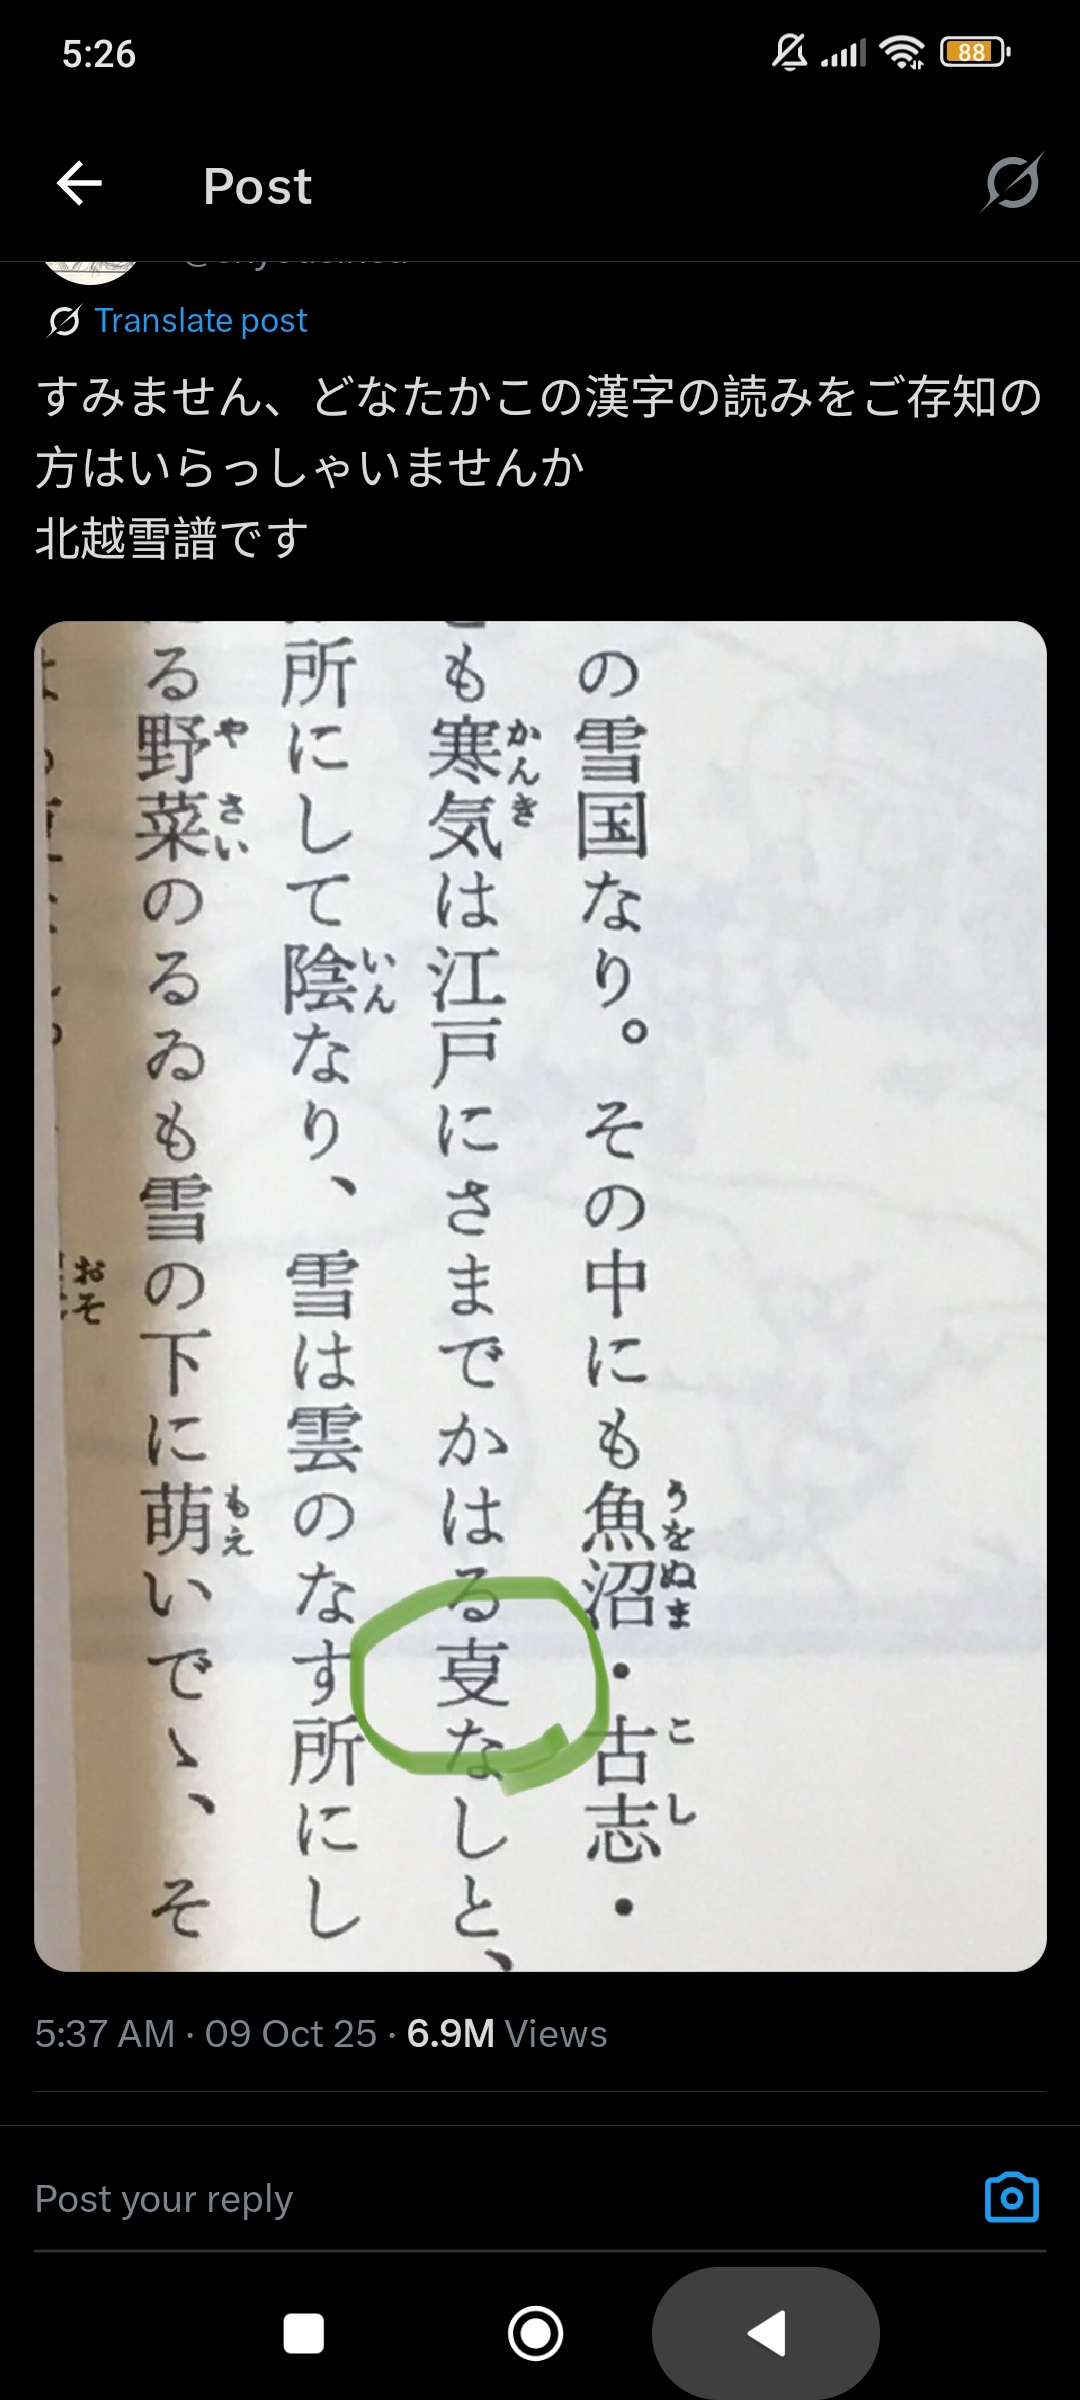 5:26
88
Post
Translate post
すみません、どなたかこの漢字の読みをご存知の
方はいらっしゃいませんか
北越雪譜です
の雪国なり。その中にも魚沼・古志・
うをぬま
こし
も寒気は江戸にさまでかはる叓なしと、
かんき
所にして陰なり、雪は雲のなす所にし
いん
る野菜のるゐも雪の下に萌いでゝ、そ
やさい
もえ
おそ
5:37 AM · 09 Oct 25 · 6.9M Views
Post your reply